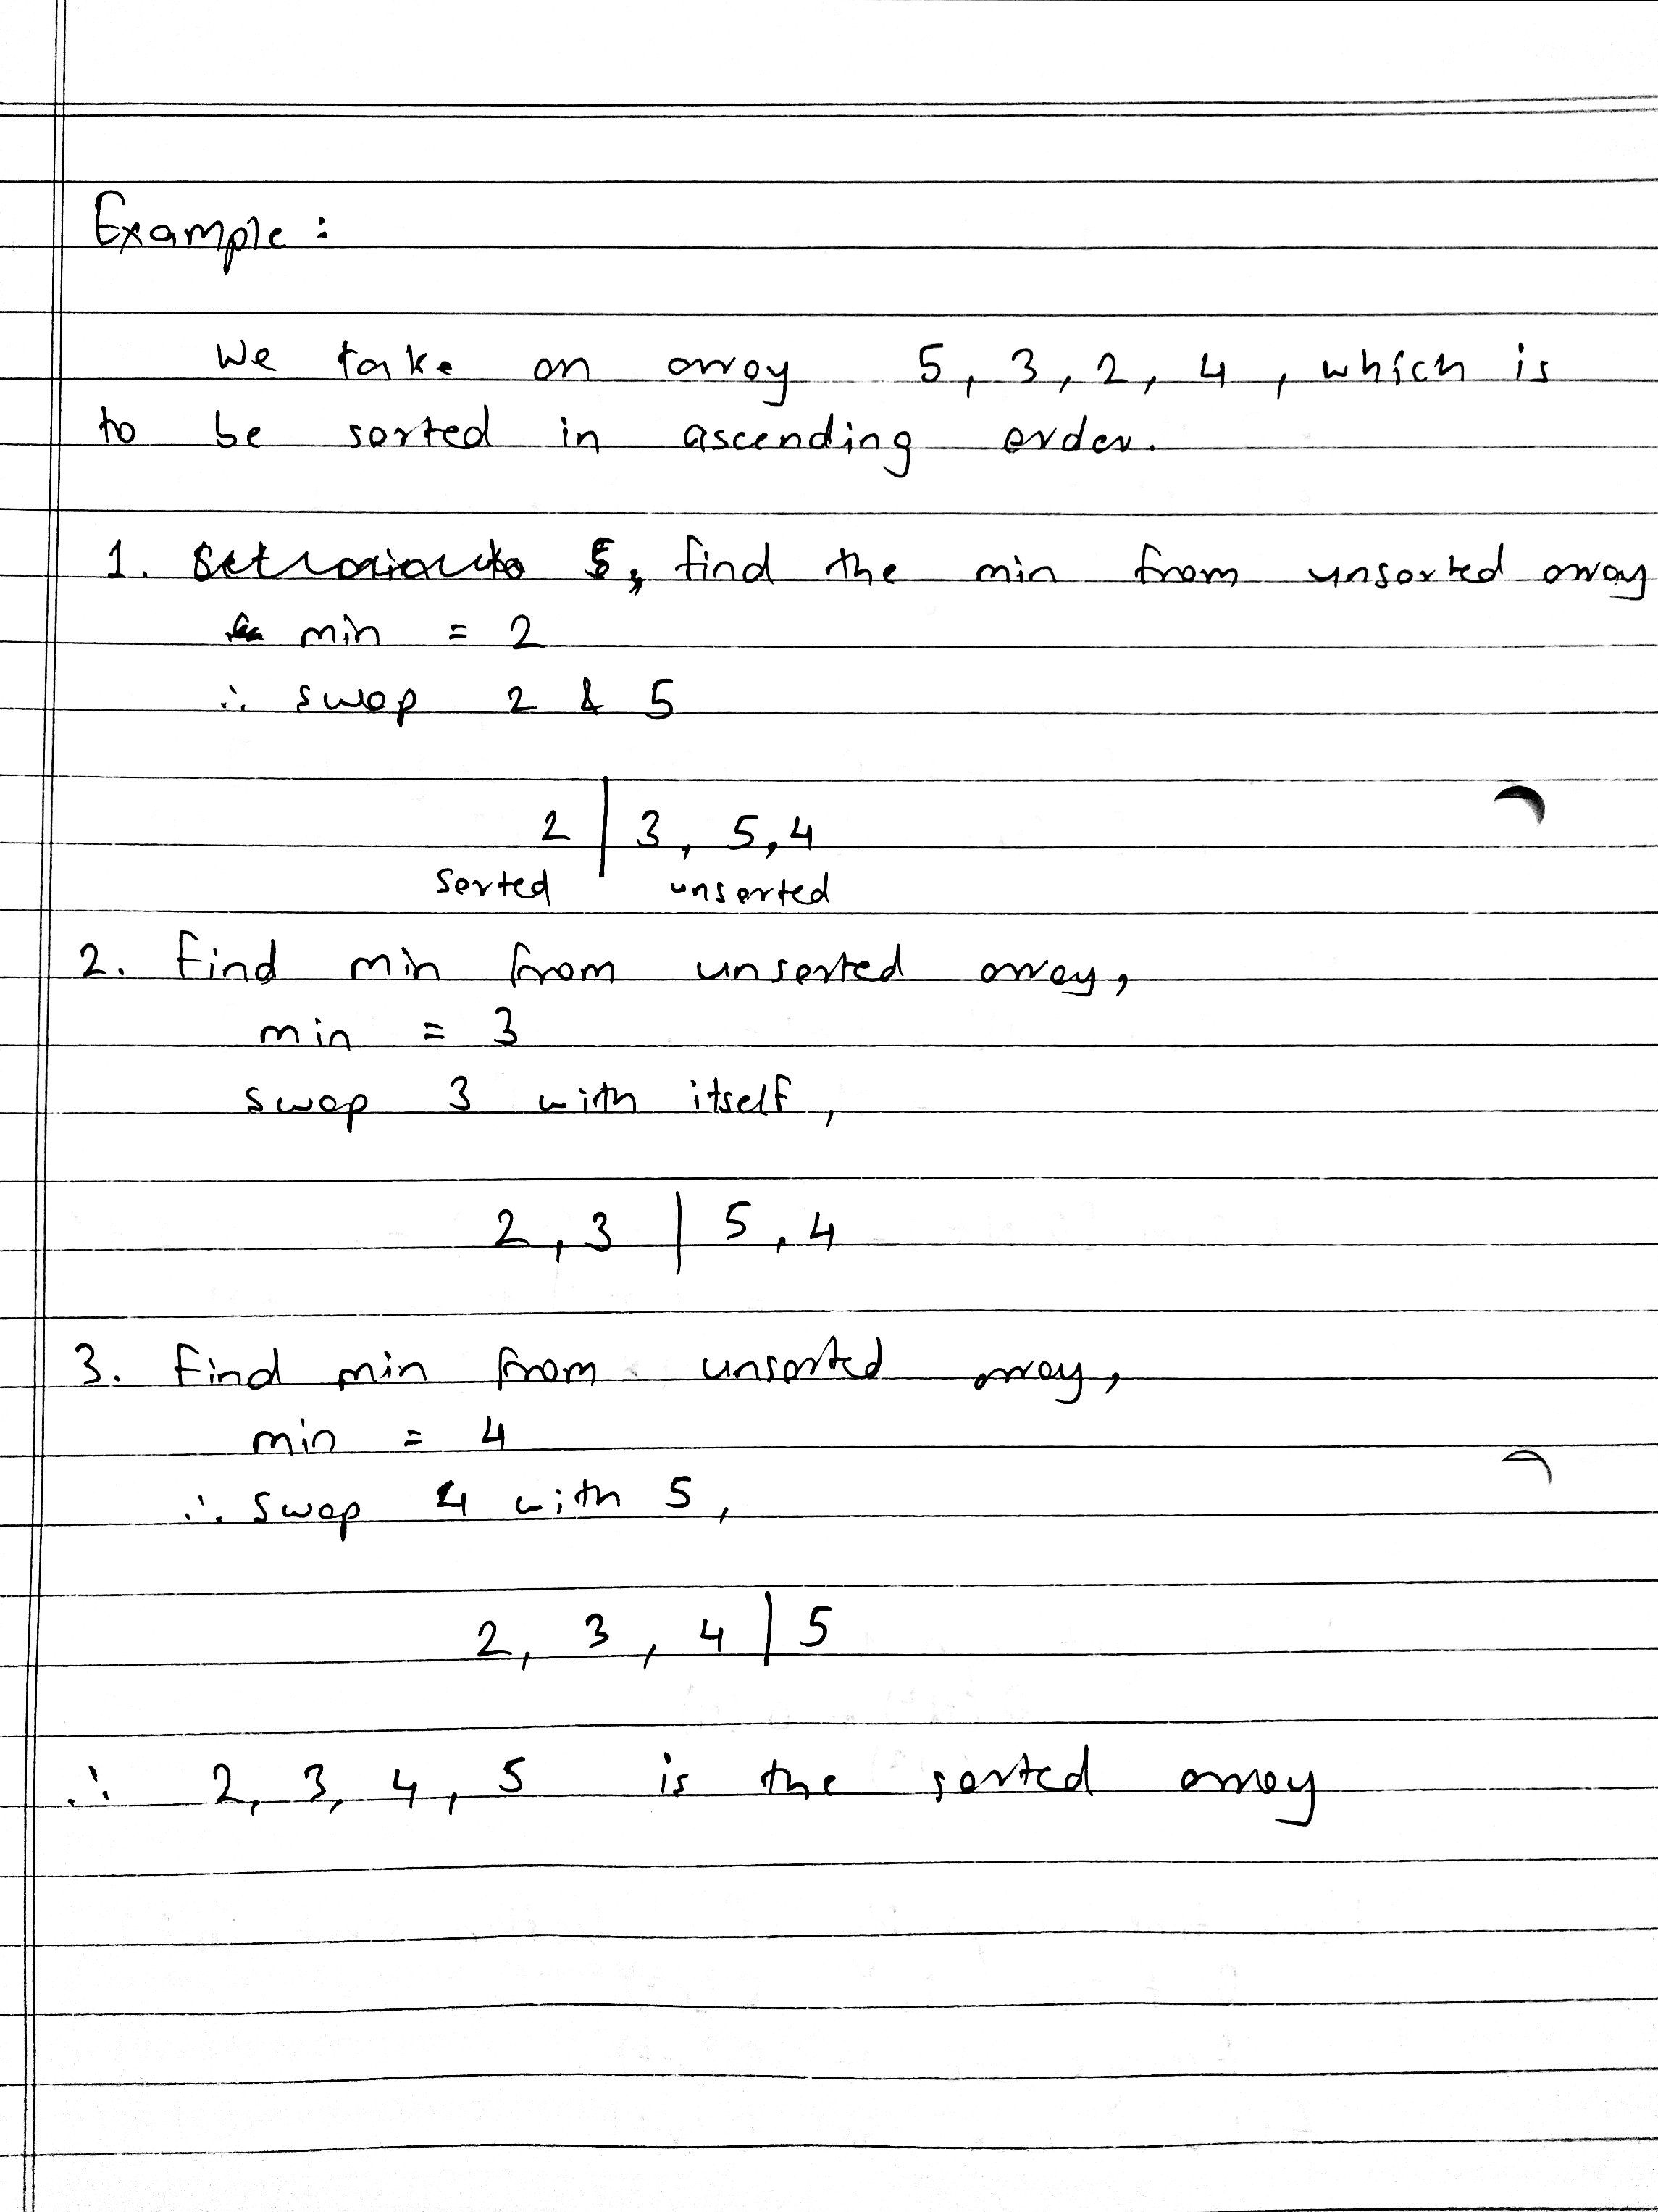 Example :
We take an array 5, 3, 2, 4, which is
to be sorted in ascending order.
1. find the min from unsorted array
min = 2
∴ swap 2 & 5
2 | 3, 5, 4
sorted unsorted
2. Find min from unsorted array,
min = 3
swap 3 with itself,
2, 3 | 5, 4
3. Find min from unsorted array,
min = 4
∴ swap 4 with 5,
2, 3, 4 | 5
∴ 2, 3, 4, 5 is the sorted array